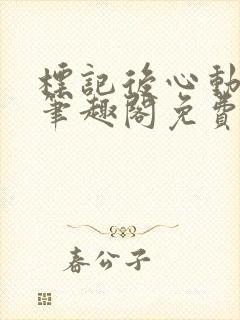 標記後心動
筆趣閣免費
春公子